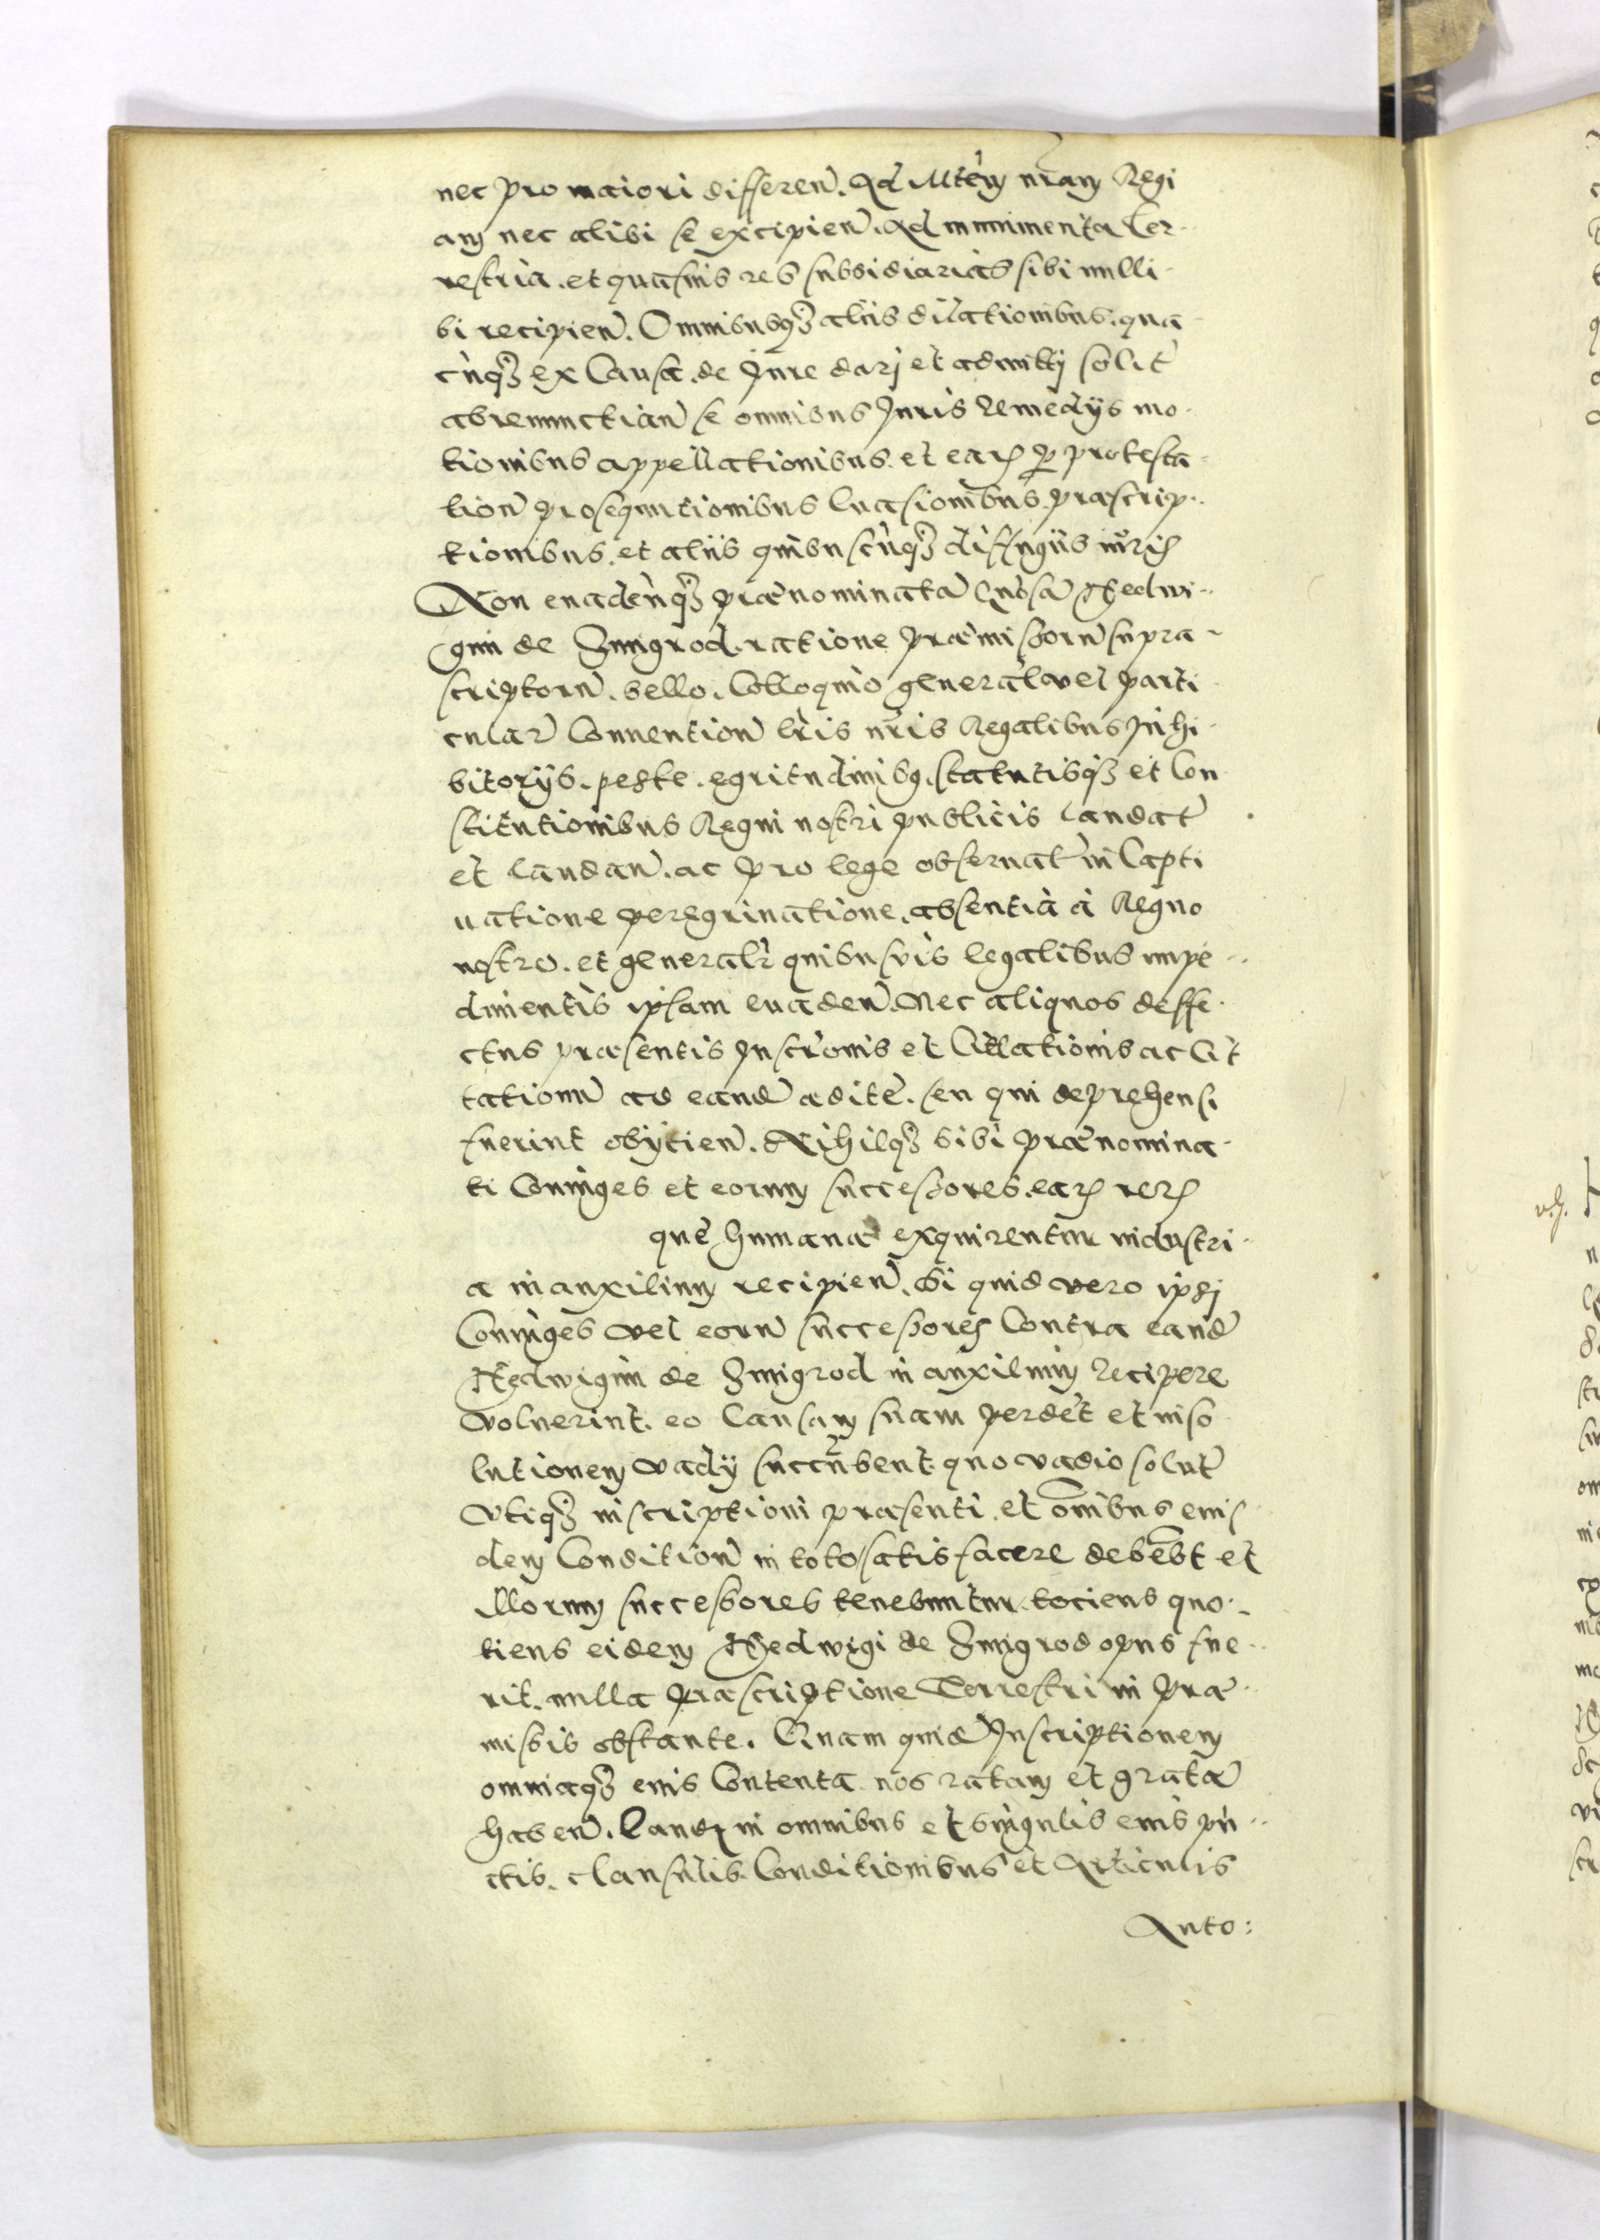 nec pro maiori differen. Ad Mtem nram Regi
am nec alibi se excipien. Ad munimenta Ter-
restria. et quasuis res subsidiarias sibi nulli-
bi recipien. Omnibusq3 aliis dilationibus. qua
cunq3 ex Causa. de Jure darj et admittj solit
abrenunctian se omnibus Juris Remedijs mo-
tionibus appellationibus. et ear per protesta-
tion prosequutionibus Euasionibus. praescrip-
tionibus. et aliis quibuscunq3 diffugiis iuris
Non euadenq3 praenominata Gnosa Hedwi-
gim de Zmigrod. ratione praemissorum supra-
scriptorum. bello. Colloquio generali vel parti
cular Conuention lris nris Regalibus Inhi-
bitorijs. peste. egritudinibus. statutisq3 et Con
stitutionibus Regni nostri publicis laudat
et laudan. ac pro lege obseruat in Capti
uatione peregrinatione. absentia a Regno
nostro. et generalr quibusuis legalibus impe-
dimentis ipsam euaden. Nec aliquos deffe-
ctus praesentis Inscronis et Citationis ac Cit
tationum ad eand adite. seu qui deprehensi
fuerint obijcien. Nihilq3 sibi praenomina-
ti Coniuges et eorum successores. ear rer
que humana exquirentur industri-
a in auxilium recipien. Si quid vero ipsj
Coniuges vel eorum successores Contra eand
Hedwigim de Zmigrod in auxilium recipere
voluerint. eo Causam suam perdet et in so
lutionem vadij succumbent. quo vadio solut
Vtiq3 inscriptioni praesenti. et omibus eius
dem Condition in toto satisfacere debebt et
illorum successores tenebuntur. tociens quo-
tiens eidem Hedwigi de Zmigrod opus fue-
rit. nulla praescriptione Terrestri in prae-
missis obstante. Quam quid Inscriptionem
omniaq3 eius Contenta nos ratam et gratam
haben. Eand in omnibus et singulis eius pun-
ctis. clausulis. Conditionibus et Articulis
Auto: